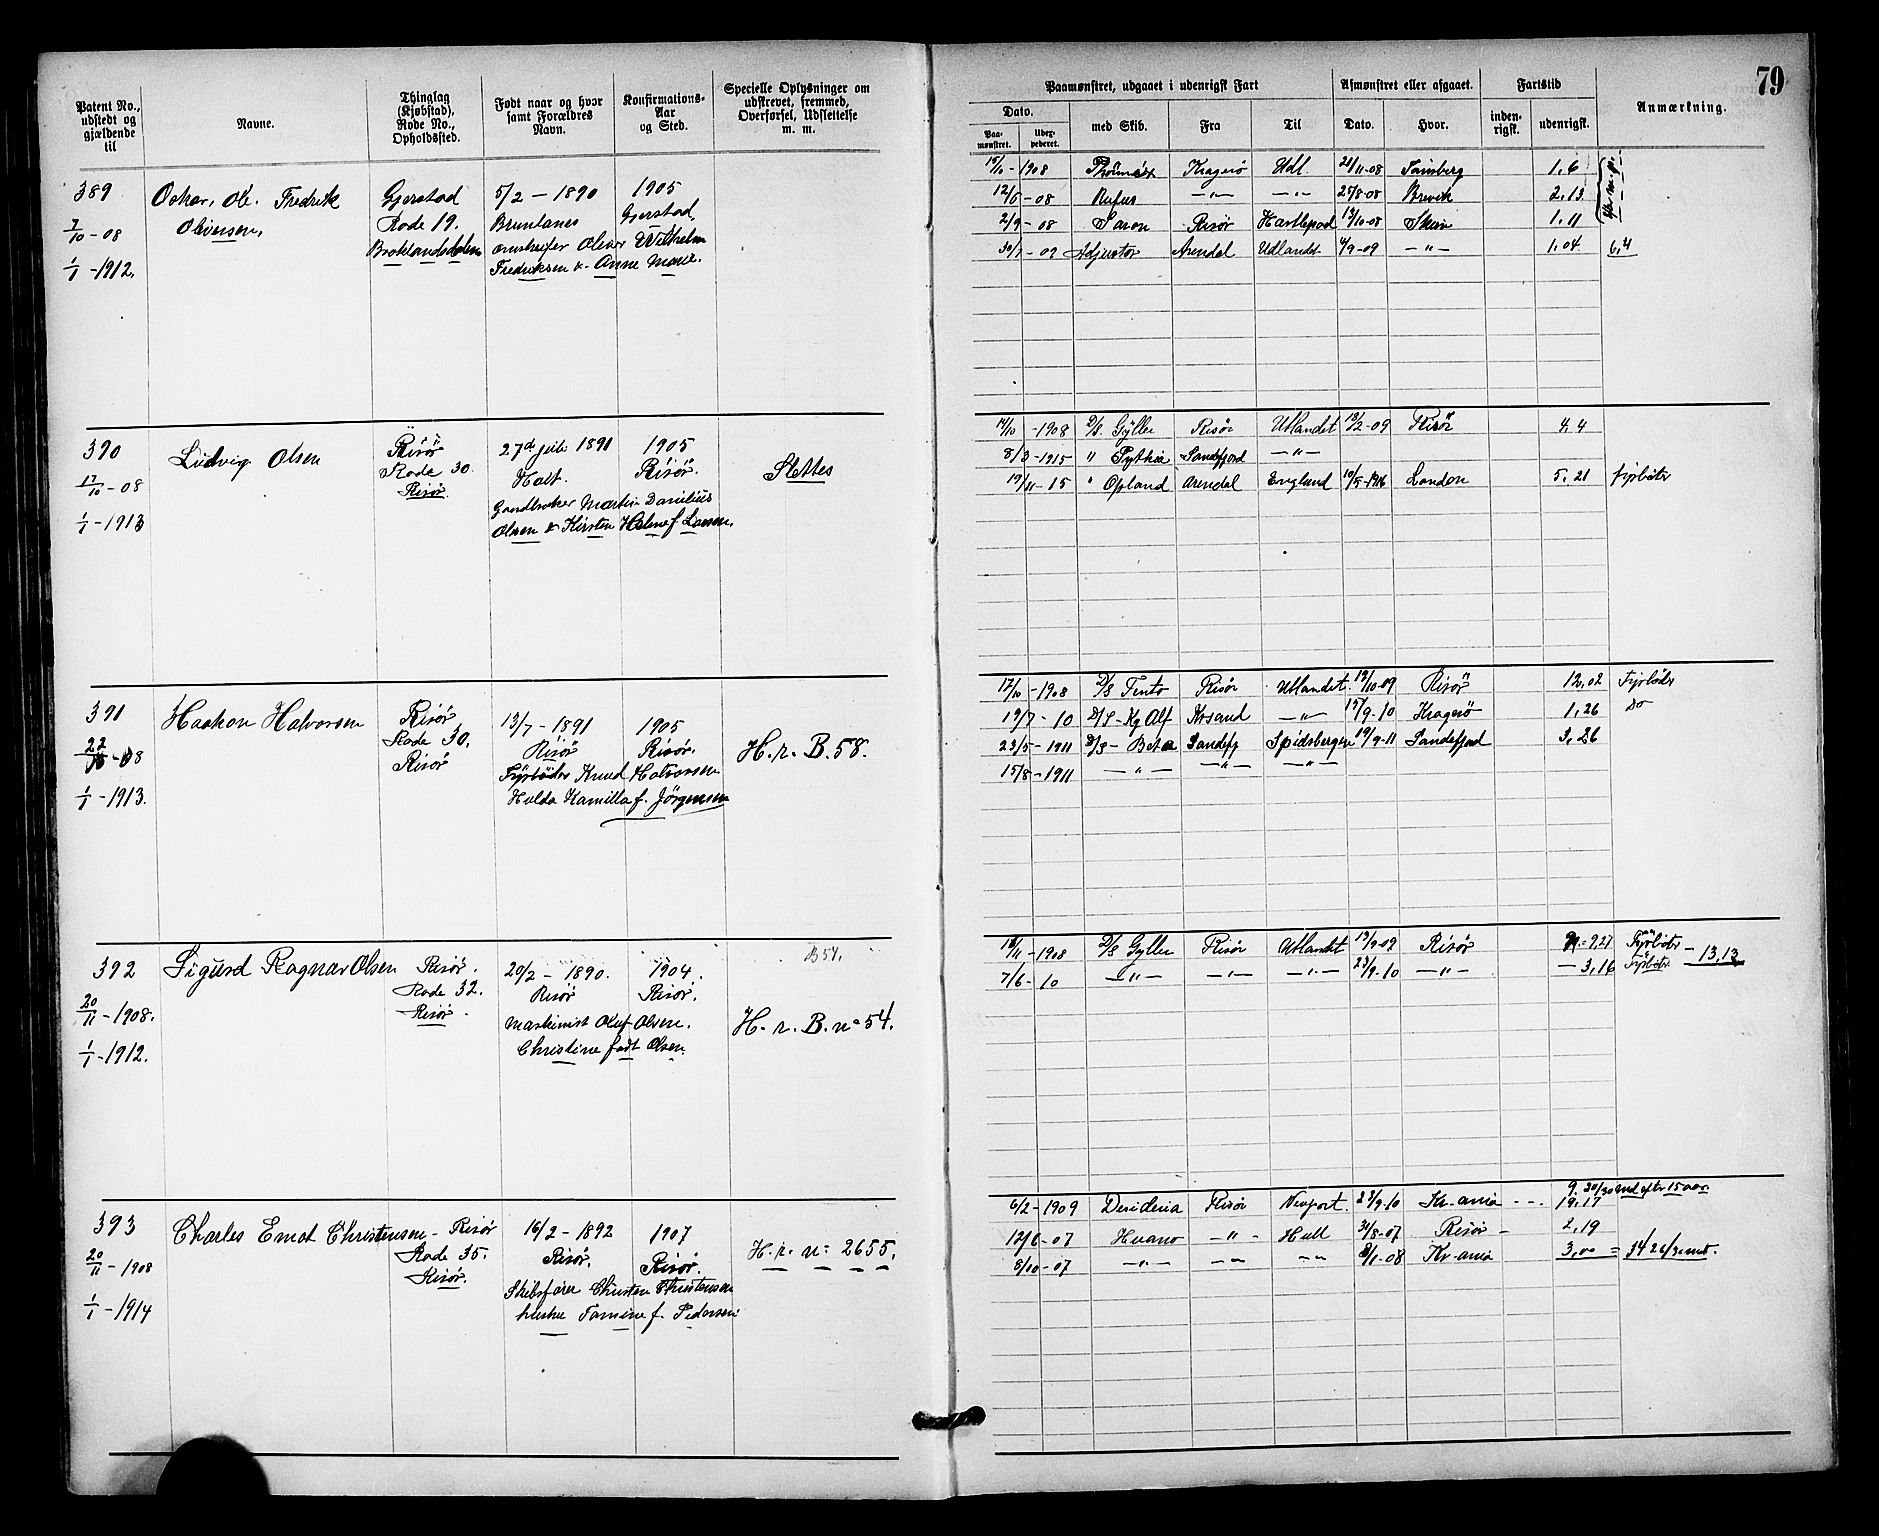 79
Patent No., udstedt og gjældende til
Navne.
Thinglag (Kjøbstad), Rode No., Opholdssted.
Født naar og hvor samt Forældres Navn.
Konfirmations-Aar og Sted.
Specielle Oplysninger om udskrevet, fremmed, Overførsel, Udslettelse m. m.
Paamønstret, udgaaet i udenrigsk Fart
Afmønstret eller afgaaet.
Fartstid
Anmærkning.
Dato.
Paa-mønstret.
med Skib.
Fra
Til
Dato.
Hvor.
inden-rigsk.
udenrigsk.
389
7/10-08
1/1-1912.
Oskar, Ol. Fredrik
Olivensen,
Gjerstad
Rode 19.
Broklandsdalen
5/2-1890
Brunlanes
Oliver Wilhelm
Fredriksen & Anne Marie.
1905
Gjerstad
15/11-1908 Kragerø Udl. 21/11-08 1,6
12/6-08 Rufus -"- -"- 25/8-08 Brevik 2,13
2/9-08 Saron Risør Hartlepool 13/10-08 Skien 1,11
30/7-09 Adjustor Arendal Udlandet 4/9-09 -"- 1,04 6,4
390
17/10-08
1/1-1913
Ludvig Olsen
Risör
Rode 30.
Risør
27de juli 1891
Holt.
Martin Danielius
Olsen & Kirsten Heline f. Larsen.
1905
Risør.
Slettes
14/10-1908 D/S. Gyller Risør Utlandet 13/2-09 Risör 4,4
8/3-1915 " Pythia Sandefjord -"-
19/11-15 " Opland Arendal England 10/5-1916 London 5,21 fyrbøter
391
22/10-08
1/1-1913.
Haakon Halvorsen
Risør
Rode 30.
Risør
13/7-1891
Risør
Fyrbøder Knud Halvorsen
Hulda Kamilla f. Jörgensen
1905
Risør.
H. r. B. 58.
17/10-1908 D/S Tento Risør Utlandet. 19/10-09 Risör 12,02 Fyrbøder
19/7-10 D/S-Kg Alf Krsand -"- 15/9-10 Kragerø 1,26 Do
23/5-1911 D/S- Beta Sandefj Spidsbergen 19/9-11 Sandefjord 3,26
15/8-1911 -"- -"- -"-
392
20/11-1908.
1/1-1912.
Sigurd Ragnar Olsen
Risør.
Rode 32.
Risør.
20/2-1890.
Risør
Maskinist Oluf Olsen.
Christine født Olsen.
1904.
Risør.
B 54.
H. r. B. n° 54.
18/11-1908 D/S Gyller Risør Utlandet 19/9-09 Risör 9,27 Fyrbøter
7/6-10 -"- -"- -"- 23/9-10 -"- -3,16 Fyrbøter -13,13
393
20/11-1908
1/1-1914
Charles Emat Christensen
Risør
Rode 35.
Risør.
16/2-1892
Risør.
Skibsfører Christen Christensen
hustru Tomine f. Pedersen
1907
Risør.
H. r. n° 2655.
6/2-1909 Desideria Risør Newport. 23/9-10 Kr-ania 19.17
12/6-07 Huano -"- Hull 31/8-07 Risør 2,19
8/10-07 -"- -"- 8/1-08 Kr-ania 3,00